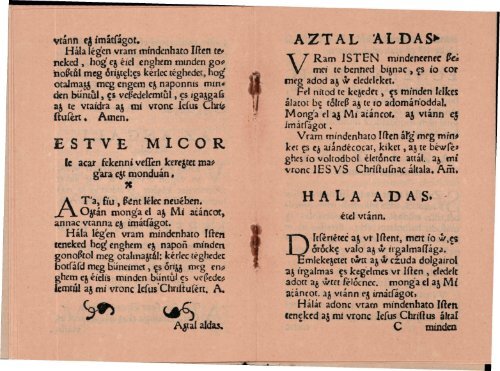 vtánn eʒ imátſágot.
Hála légen vram mindenhato Iſten te-
neked, hog' eʒ éiel enghem minden go-
noſtúl meg őriʒtel: es kérlec téghedet, hog'
otalmaʒʒ meg engem eʒ naponnis min-
den bűntűl, es veſſedelemtűl, es igaʒgaſs
aʒ te vtaidra aʒ mi vronc Ieſus Chriſ-
tuſért. Amen.
ESTVE MICOR
le acar fekenni veſſen kereʒtet ma-
gára eʒt mondván.
AT'a, fiu, ſʒent lélec neuében.
Oʒtán monga el aʒ Mi atáncot,
annac vtanna eʒ imátſágot.
Hála légen vram mindenhato Iſten
teneked hog' enghem eʒ napon minden
gonoſtol meg otalmaʒtál: kérlec téghedet
botſásd meg bűneimet, es őriʒʒ meg en-
ghem eʒ éielis minden bűntűl es veſʒede-
lemtűl aʒ mi vronc Ieſus Chriſtuſért. A.
Aʒtal aldas.
AZTAL ALDAS.
VRam ISTEN mindeneknec ſʒe-
mei te benned biʒnac, es io cor
meg adod aʒ ẃ eledeleket.
Fel nitod te keʒedet, es minden lelkes
álatot bę tőlteſs aʒ te io adománóddal.
Monga el aʒ Mi atáncot. aʒ vtánn eʒ
imátſágot.
Vram mindenhato Iſten álg' meg min-
ket es eʒ aiándécocat, kiket, aʒ te bẃſe-
ghes io voltodbol életőncre attál. aʒ mi
vronc IESVS Chriſtuſnac általa, Am.
HALA ADAS.
étel vtánn.
Ditſerietec aʒ vr Iſtent, mert io ẃ, es
őrőcke valo aʒ ẃ irgalmaſſága.
Emlekeʒetet tẃtt aʒ ẃ cʒuda dolgairol
aʒ irgalmas es kegelmes vr Iſten, eledelt
adott aʒ ẃtet félőknec. monga el aʒ Mi
atáncot. aʒ vtánn eʒ imátſágot.
Hálát adonc vram mindenhato Iſten
teneked aʒ mi vronc Ieſus Chriſtus által
C minden